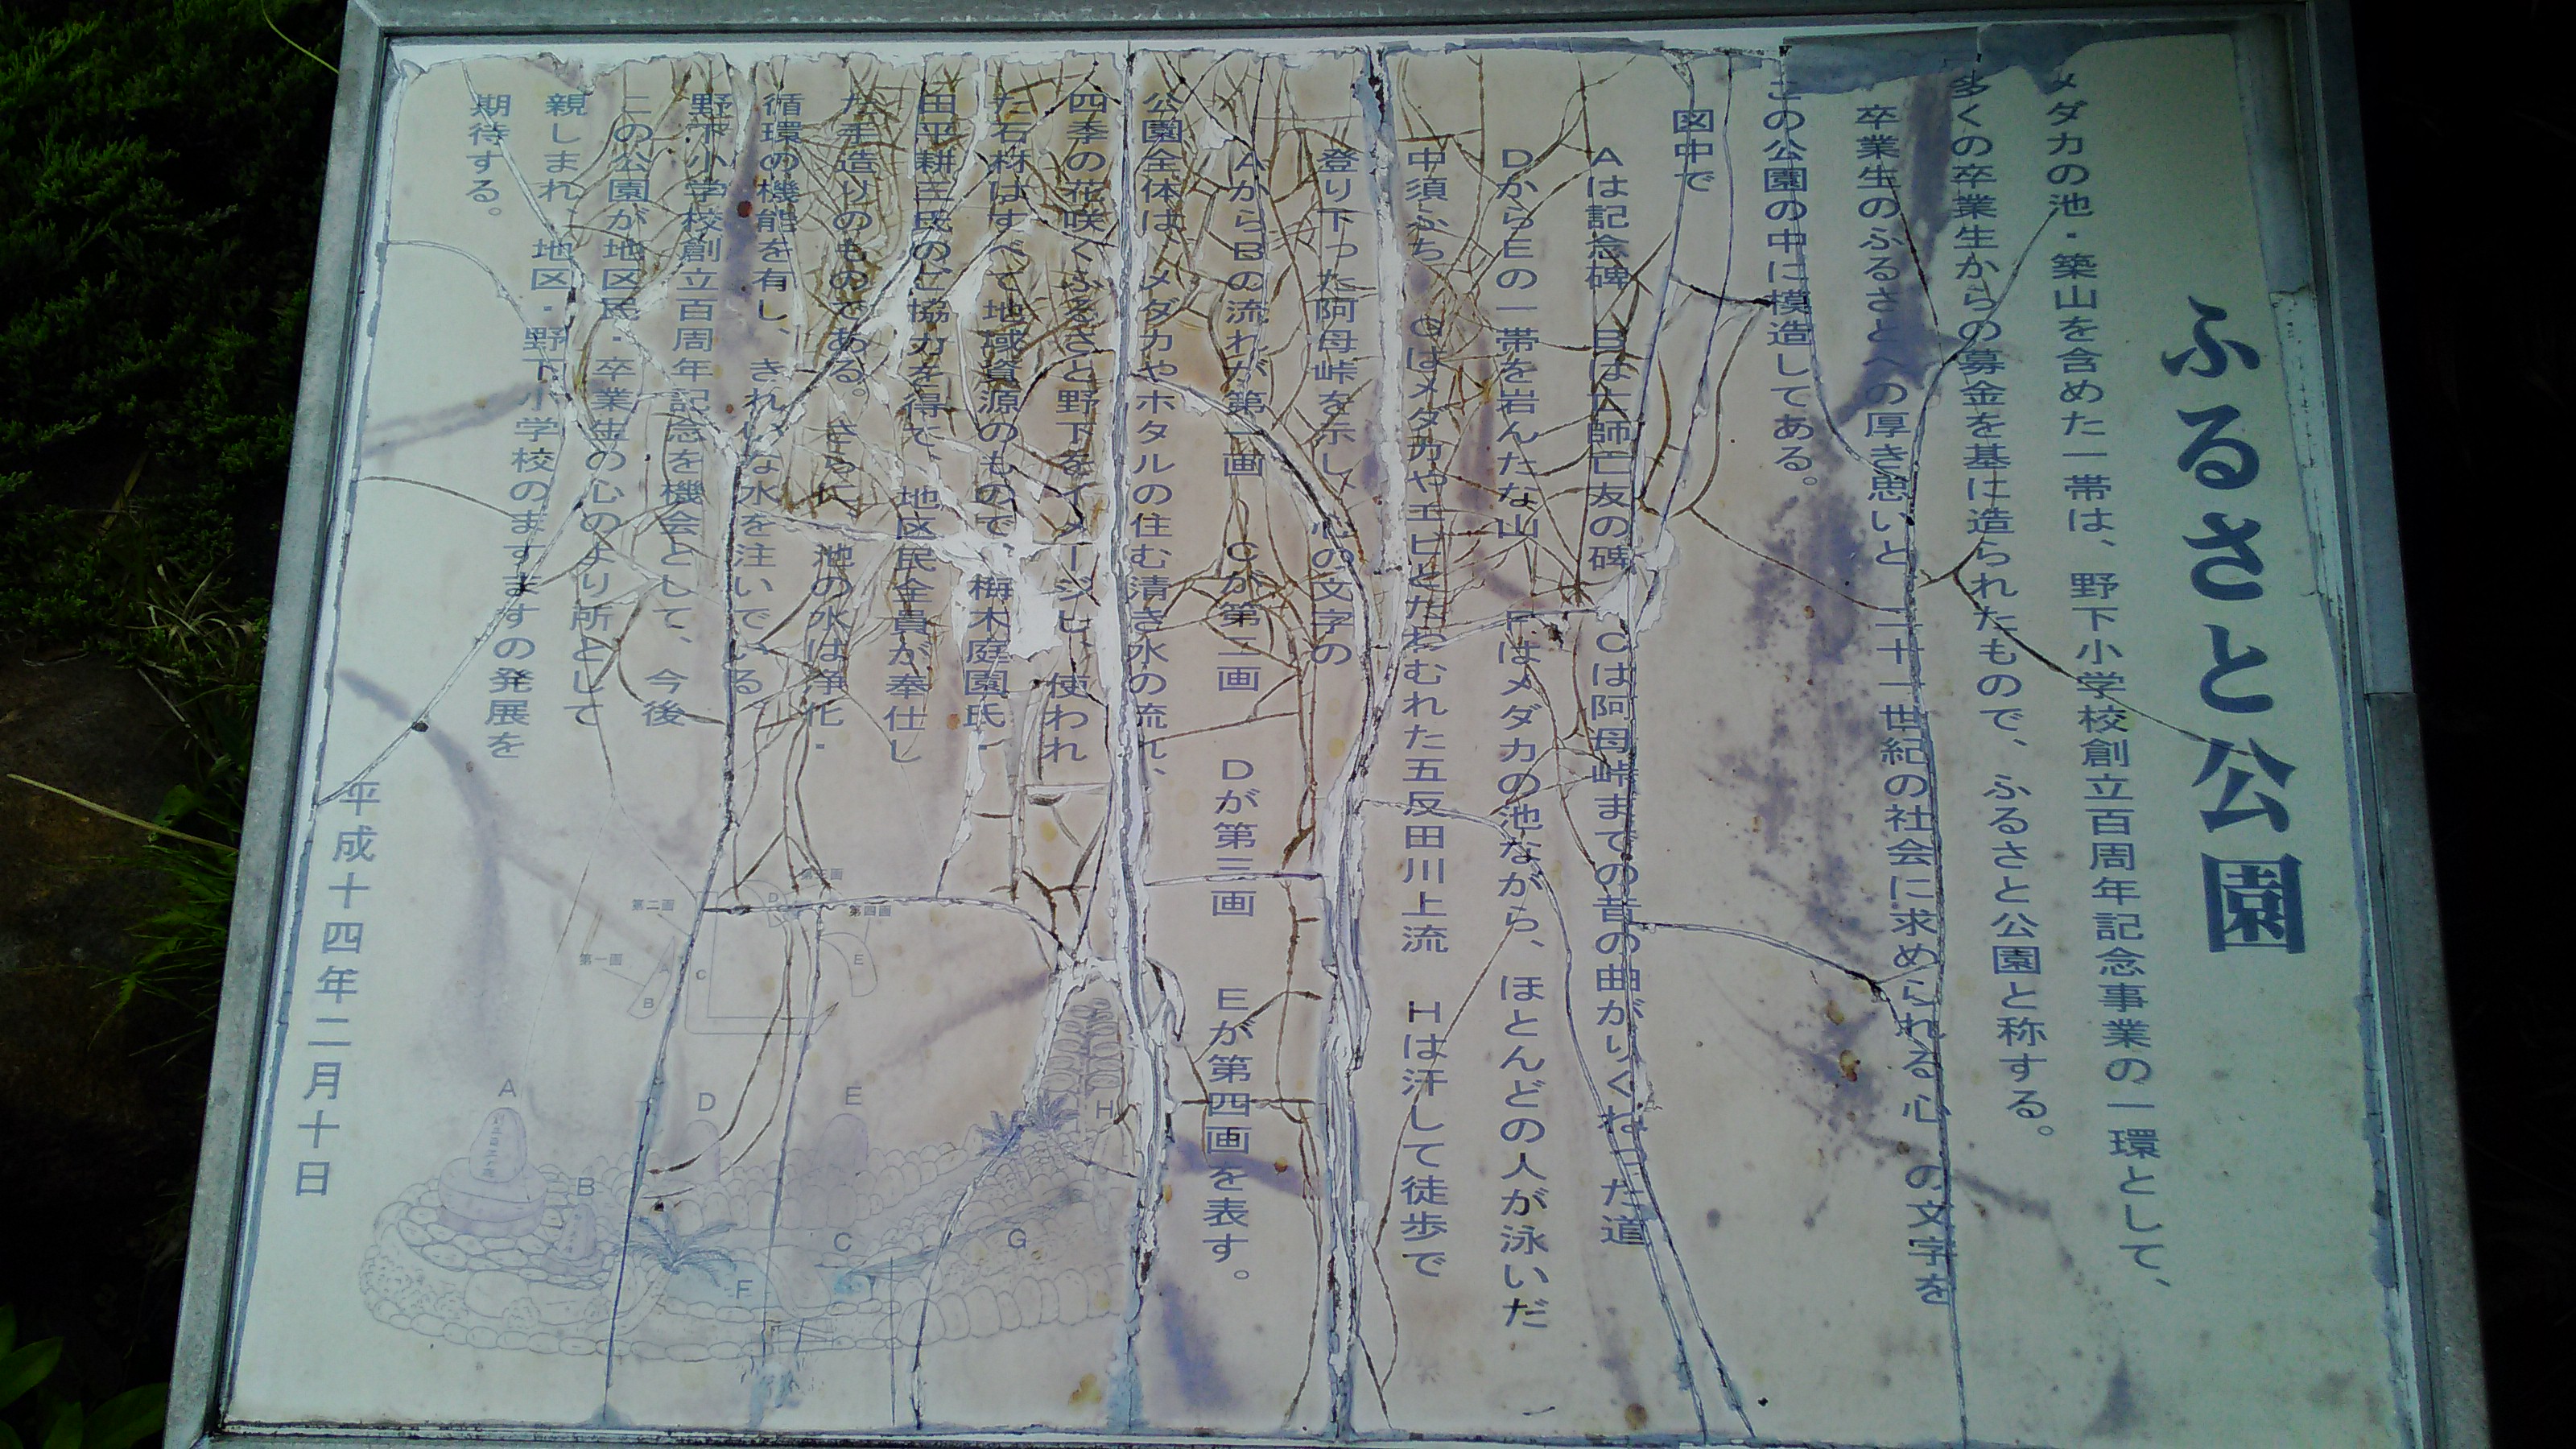 ふるさと公園
メダカの池・築山を含めた一帯は、野下小学校創立百周年記念事業の一環として、
多くの卒業生からの募金を基に造られたもので、ふるさと公園と称する。
卒業生のふるさとへの厚き思いと、二十一世紀の社会に求められる心 の文字を
この公園の中に模造してある。
図中で
Aは記念碑 Bは亡師亡友の碑 Cは阿母峠までの昔の曲がりくねった道
DからEの一帯を岩んたな山 Fはメダカの池ながら、ほとんどの人が泳いだ
中須ふち Gはメダカやエビとたわむれた五反田川上流 Hは汗して徒歩で
登り下った阿母峠を示し、心の文字の
AからBの流れが第一画 Cが第二画 Dが第三画 Eが第四画を表す。
公園全体は、メダカやホタルの住む清き水の流れ、
四季の花咲くふるさと野下をイメージし、使われ
た石材はすべて地域資源のもので、梅木庭園氏・
田平耕三氏のご協力を得て、地区民全員が奉仕し
た手造りのものである。さらに、池の水は浄化・
循環の機能を有し、きれいな水を注いでいる。
野下小学校創立百周年記念を機会として、今後
この公園が地区民・卒業生の心のより所として
親しまれ、地区・野下小学校のますますの発展を
期待する。
平成十四年二月十日
第三画
第二画
第四画
第一画
D
A
B
C
E
A
B
C
D
E
F
G
H